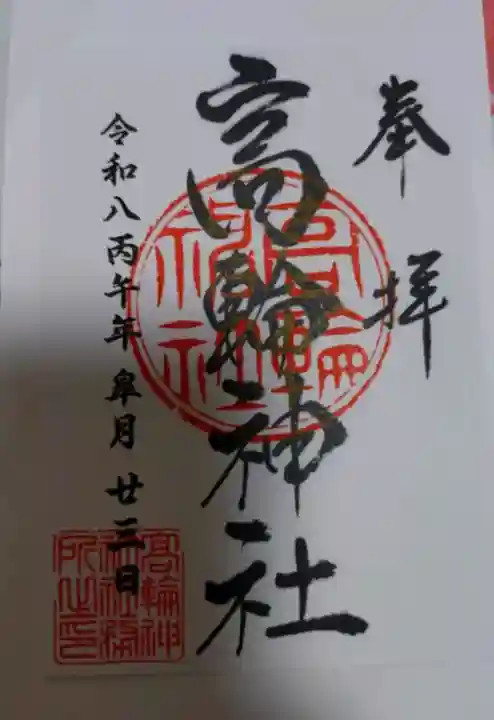 奉拝
高輪神社
令和八丙午年皐月廿三日
高輪神社
高輪神社務所之印